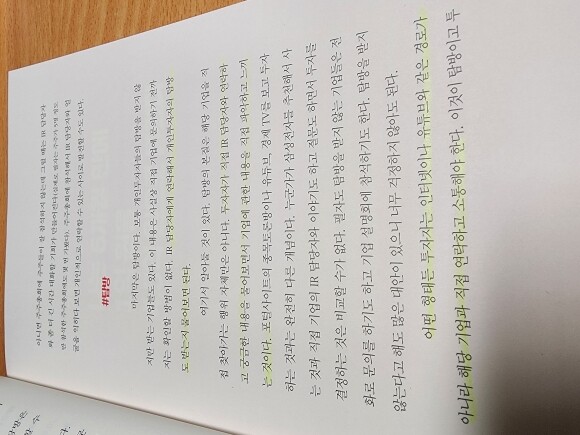 아니면 주주총회에 주주들이 잘 참석하지 않는데 그럴 때는 IR 담당자
와 좀 더 긴 시간 대화할 기회가 만들어진다
만 참석한 주주총회에도 몇 번 가봤다). 주주총회에 참석해서 IR 담당자와 얼
굴을 익히다 보면 개인적으로 연락할 수 있는 사이로 발전할 수도 있다.
#탐방
마지막은 탐방이다. 보통 개인투자자들의 탐방을 받지 않
지만 받는 기업들도 있다. 이 내용은 사실상 직접 기업에 문의하기 전까
지는 확인할 방법이 없다. IR 담당자에게 연락해서 개인투자자의 탐방
도 받는지 물어보면 된다.
여기서 알아둘 것이 있다. 탐방의 본질은 해당 기업을 직
접 찾아가는 행위 자체만은 아니다. 투자자가 직접 IR 담당자와 연락하
고 궁금한 내용을 물어보면서 기업에 관한 내용을 직접 파악하고 느끼
는 것이다. 포털사이트의 종목토론방이나 유튜브, 경제 TV를 보고 투자
하는 것과는 완전히 다른 개념이다. 누군가 삼성전자를 추천해서 사
는 것과 직접 기업의 IR 담당자와 이야기도 하고 질문도 하면서 투자를
결정하는 것은 비교할 수가 없다. 필자도 탐방을 받지 않는 기업들은 전
화로 문의를 하기도 하고 기업 설명회에 참석하기도 한다. 탐방을 받지
않는다고 해도 많은 대안이 있으니 너무 걱정하지 않아도 된다.
어떤 형태든 투자자는 인터넷이나 유튜브와 같은 경로가
아니라 해당 기업과 직접 연락하고 소통해야 한다. 이것이 탐방이고 투